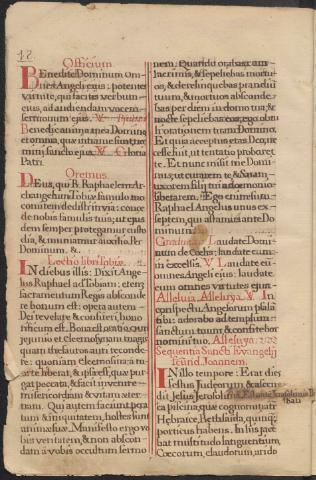 12
Officium
Benedicite Dominum om-
nes Angeli eius: potentes
virtute, qui facitis verbum
eius, ad audiendam vocem
sermonum eius. V.
Benedic anima mea Domino
et omnia, quæ intra me sunt no-
mini sancto eius. V. Gloria
Patri.
Oremus.
Deus, qui B. Raphaelem Ar-
changelum Tobiæ famulo tuo
comitem dedisti in via: conce-
de nobis famulis tuis; ut ejus
dem semper protegamur custo
dia, & muniamur auxilio. Per
Dominum. &.
Lectio libri Tobiæ.
In diebus illis: Dixit Ange-
lus Raphael ad Tobiam: etenim
sacramentum Regis absconde
re bonum est: opera autem
Dei revelare & confiteri, hono
rificum est. Bona est oratio cum
jejunio et eleemosynam magis
quam thesauros auri reconde-
re: quoniam eleemosina a mo
rte liberat, & ipsa est, quæ pur
gat peccata, & facit invenire
misericordiam & vitam æter
nam. Qui autem faciunt pecca
tum & iniquitatem, hostes sunt
animæ suæ. Manifesto ergo vo
bis veritatem, & non abscon
dam à vobis occultum sermo
nem. Quando orabas cum
lacrimis, & sepeliebas mortu
os, & derelinquebas prandium
tuum, & mortuos abscondebas
per diem in domo tua, &
nocte sepeliebas eos, ego obtu
li orationem tuam Domino.
Et quia acceptus eras Deo, ne
cesse fuit, ut tentatio probaret
te. Et nunc misit me Domi
nus, ut curarem te, & Saram
uxorem filii tui a dæmonio
liberarem. Ego enim sum
Raphael Angelus unus ex
septem, qui astamus ante Do
minum.
Graduale. Laudate Domi
num de Coelis: laudate eum
in excelsis. V. Laudate eum
omnes Angeli ejus: laudate
eum omnes virtutes ejus.
Alleluia, Alleluya. V. In
conspectu Angelorum psalla
tibi: adorabo ad templum
sanctum tuum & confitebor
nomini tuo. Alleluya.
Sequentia Sancti Evangelij
secund. Joannem.
In illo tempore: Erat dies
festus Judeorum & ascen
dit Jesus Jerosolimam. Est autem Jerosolimis Pro
bati
ca piscina, quæ cognominatur
Hebraice, Bethsaida, quinque
porticus habens. In his jace
bat multitudo languentium,
Coecorum, claudorum, arido